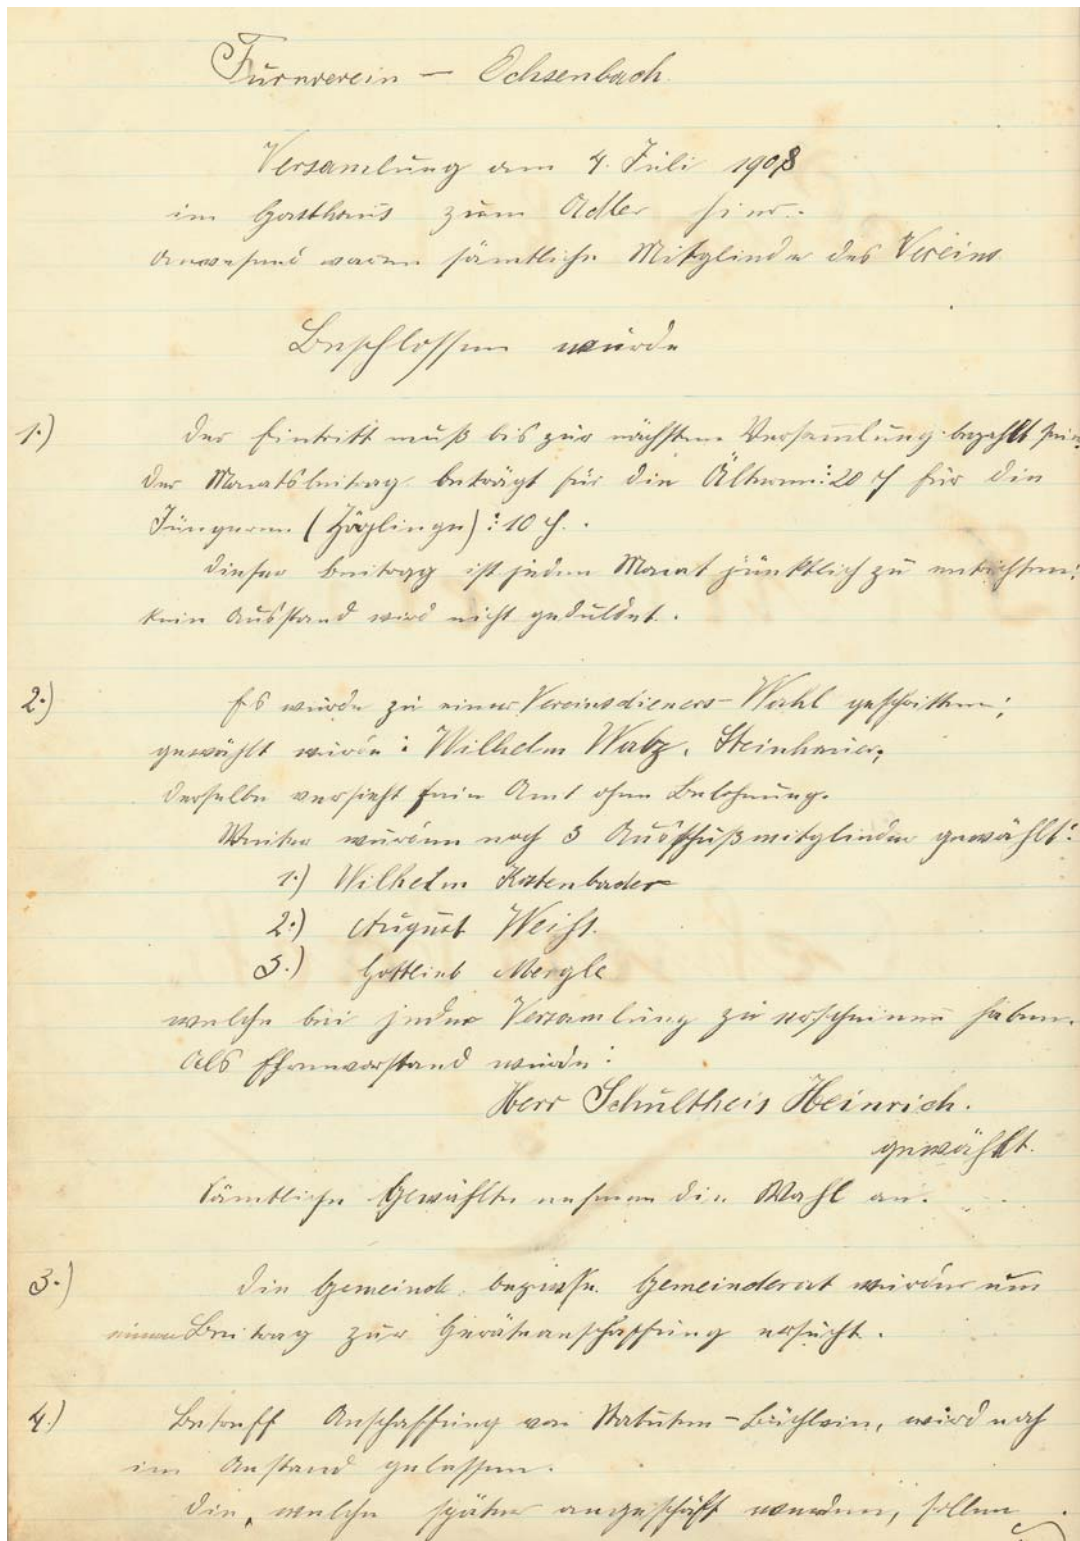 Turnverein — Ochsenbach.
Versamlung am 4. Juli 1908
im Gasthaus zum Adler hier.
Anwesend waren sämtliche Mitglieder des Vereins
Beschlossen wurde
1.) Der Eintritt muß bis zur nächsten Versammlung bezahlt sein,
Der Monatsbeitrag beträgt für die Älteren: 20 ₰ für die
Jüngeren (Zöglinge): 10 ₰.
Dieser Beitrag ist jeden Monat pünktlich zu entrichten;
kein Ausstand wird nicht geduldet.
2.) Es wurde zu einer Vereinsdieners-Wahl geschritten;
gewählt wurde: Wilhelm Watz, Steinhauer,
derselbe versieht sein Amt ohne Belohnung.
Weiter wurden noch 3 Ausschußmitglieder gewählt:
1.) Wilhelm Katenbader
2.) August Weiß.
3.) Gottlieb Mergle
welche bei jeder Versamlung zu erscheinen haben.
Als Ehrenvorstand wurde:
Herr Schultheis Heinrich.
gewählt.
Sämtliche Gewählte nehmen die Wahl an.
3.) Die Gemeinde, Gemeinderat um
einen Beitrag zur Geräteanschaffung ersucht.
4.) Betreff Anschaffung von Statuten-Büchlein, wird noch
im Anstand gelassen.
Die, welche später angeschaft werden, sollen